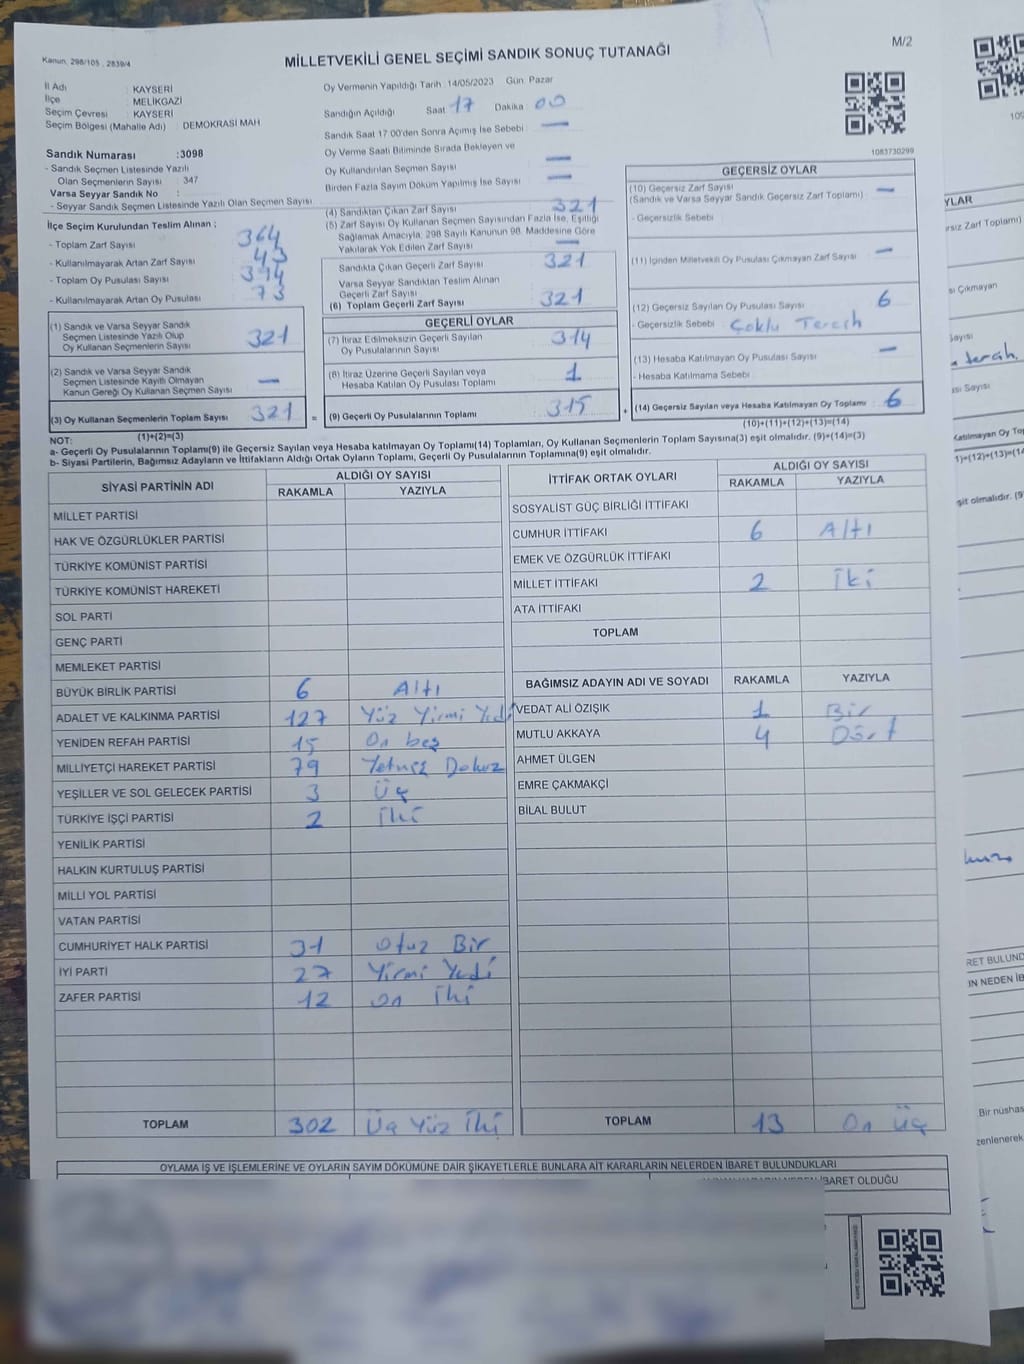 Kanun, 298/105, 2839/4
MİLLETVEKİLİ GENEL SEÇİMİ SANDIK SONUÇ TUTANAĞI
M/2
İl Adı : KAYSERİ
İlçe : MELİKGAZİ
Seçim Çevresi : KAYSERİ
Seçim Bölgesi (Mahalle Adı) : DEMOKRASİ MAH
Sandık Numarası :3098
- Sandık Seçmen Listesinde Yazılı
Olan Seçmenlerin Sayısı : 347
Varsa Seyyar Sandık No :
- Seyyar Sandık Seçmen Listesinde Yazılı Olan Seçmen Sayısı
Oy Vermenin Yapıldığı Tarih : 14/05/2023 Gün: Pazar
Sandığın Açıldığı Saat 17 Dakika : 00
Sandık Saat 17:00'den Sonra Açımış İse Sebebi : —
Oy Verme Saati Bitiminde Sırada Bekleyen ve
Oy Kullandırılan Seçmen Sayısı —
Birden Fazla Sayım Döküm Yapılmış İse Sayısı —
1083730299
İlçe Seçim Kurulundan Teslim Alınan ;
- Toplam Zarf Sayısı 364
- Kullanılmayarak Artan Zarf Sayısı : 43
- Toplam Oy Pusulası Sayısı : 394
- Kullanılmayarak Artan Oy Pusulası : 73
(1) Sandık ve Varsa Seyyar Sandık
Seçmen Listesinde Yazılı Olup
Oy Kullanan Seçmenlerin Sayısı : 321
(2) Sandık ve Varsa Seyyar Sandık
Seçmen Listesinde Kayıtlı Olmayan
Kanun Gereği Oy Kullanan Seçmen Sayısı —
(3) Oy Kullanan Seçmenlerin Toplam Sayısı : 321
(1)+(2)=(3)
(4) Sandıktan Çıkan Zarf Sayısı 321
(5) Zarf Sayısı Oy Kullanan Seçmen Sayısından Fazla İse, Eşitliği
Sağlamak Amacıyla; 298 Sayılı Kanunun 98. Maddesine Göre
Yakılarak Yok Edilen Zarf Sayısı : —
Sandıkta Çıkan Geçerli Zarf Sayısı 321
Varsa Seyyar Sandıktan Teslim Alınan
Geçerli Zarf Sayısı
(6) Toplam Geçerli Zarf Sayısı : 321
GEÇERLİ OYLAR
(7) İtiraz Edilmeksizin Geçerli Sayılan
Oy Pusulalarının Sayısı : 314
(8) İtiraz Üzerine Geçerli Sayılan veya
Hesaba Katılan Oy Pusulası Toplamı : 1
= (9) Geçerli Oy Pusulalarının Toplamı : 315
GEÇERSİZ OYLAR
(10) Geçersiz Zarf Sayısı
(Sandık ve Varsa Seyyar Sandık Geçersiz Zarf Toplamı) : —
- Geçersizlik Sebebi :
(11) İçinden Milletvekili Oy Pusulası Çıkmayan Zarf Sayısı : —
(12) Geçersiz Sayılan Oy Pusulası Sayısı : 6
- Geçersizlik Sebebi : Çoklu Tercih
(13) Hesaba Katılmayan Oy Pusulası Sayısı : —
- Hesaba Katılmama Sebebi :
+ (14) Geçersiz Sayılan veya Hesaba Katılmayan Oy Toplamı : 6
(10)+(11)+(12)+(13)=(14)
NOT:
a- Geçerli Oy Pusulalarının Toplamı(9) ile Geçersiz Sayılan veya Hesaba katılmayan Oy Toplamı(14) Toplamları, Oy Kullanan Seçmenlerin Toplam Sayısına(3) eşit olmalıdır. (9)+(14)=(3)
b- Siyasi Partilerin, Bağımsız Adayların ve İttifakların Aldığı Ortak Oyların Toplamı, Geçerli Oy Pusulalarının Toplamına(9) eşit olmalıdır.
SİYASİ PARTİNİN ADI ALDIĞI OY SAYISI
RAKAMLA YAZIYLA
MİLLET PARTİSİ
HAK VE ÖZGÜRLÜKLER PARTİSİ
TÜRKİYE KOMÜNİST PARTİSİ
TÜRKİYE KOMÜNİST HAREKETİ
SOL PARTİ
GENÇ PARTİ
MEMLEKET PARTİSİ
BÜYÜK BİRLİK PARTİSİ 6 Altı
ADALET VE KALKINMA PARTİSİ 127 Yüz Yirmi Yedi
YENİDEN REFAH PARTİSİ 15 On beş
MİLLİYETÇİ HAREKET PARTİSİ 79 Yetmiş Dokuz
YEŞİLLER VE SOL GELECEK PARTİSİ 3 Üç
TÜRKİYE İŞÇİ PARTİSİ 2 iki
YENİLİK PARTİSİ
HALKIN KURTULUŞ PARTİSİ
MİLLİ YOL PARTİSİ
VATAN PARTİSİ
CUMHURİYET HALK PARTİSİ 31 Otuz Bir
İYİ PARTİ 27 Yirmi Yedi
ZAFER PARTİSİ 12 On iki
TOPLAM 302 Üç Yüz İki
İTTİFAK ORTAK OYLARI ALDIĞI OY SAYISI
RAKAMLA YAZIYLA
SOSYALİST GÜÇ BİRLİĞİ İTTİFAKI
CUMHUR İTTİFAKI 6 Altı
EMEK VE ÖZGÜRLÜK İTTİFAKI
MİLLET İTTİFAKI 2 İki
ATA İTTİFAKI
TOPLAM
BAĞIMSIZ ADAYIN ADI VE SOYADI RAKAMLA YAZIYLA
VEDAT ALİ ÖZIŞIK 1 Bir
MUTLU AKKAYA 4 Dört
AHMET ÜLGEN
EMRE ÇAKMAKÇİ
BİLAL BULUT
TOPLAM 13 On üç
OYLAMA İŞ VE İŞLEMLERİNE VE OYLARIN SAYIM DÖKÜMÜNE DAİR ŞİKAYETLERLE BUNLARA AİT KARARLARIN NELERDEN İBARET BULUNDUKLARI
İBARET OLDUĞU
YLAR
rsiz Zarf Toplamı)
ısı Çıkmayan
Sayısı
terah
ası Sayısı
Katılmayan Oy To
1)+(12)+(13)=(1
şit olmalıdır. (9
RET BULUND
IN NEDEN İB
Bir nüshas
zenlenerek